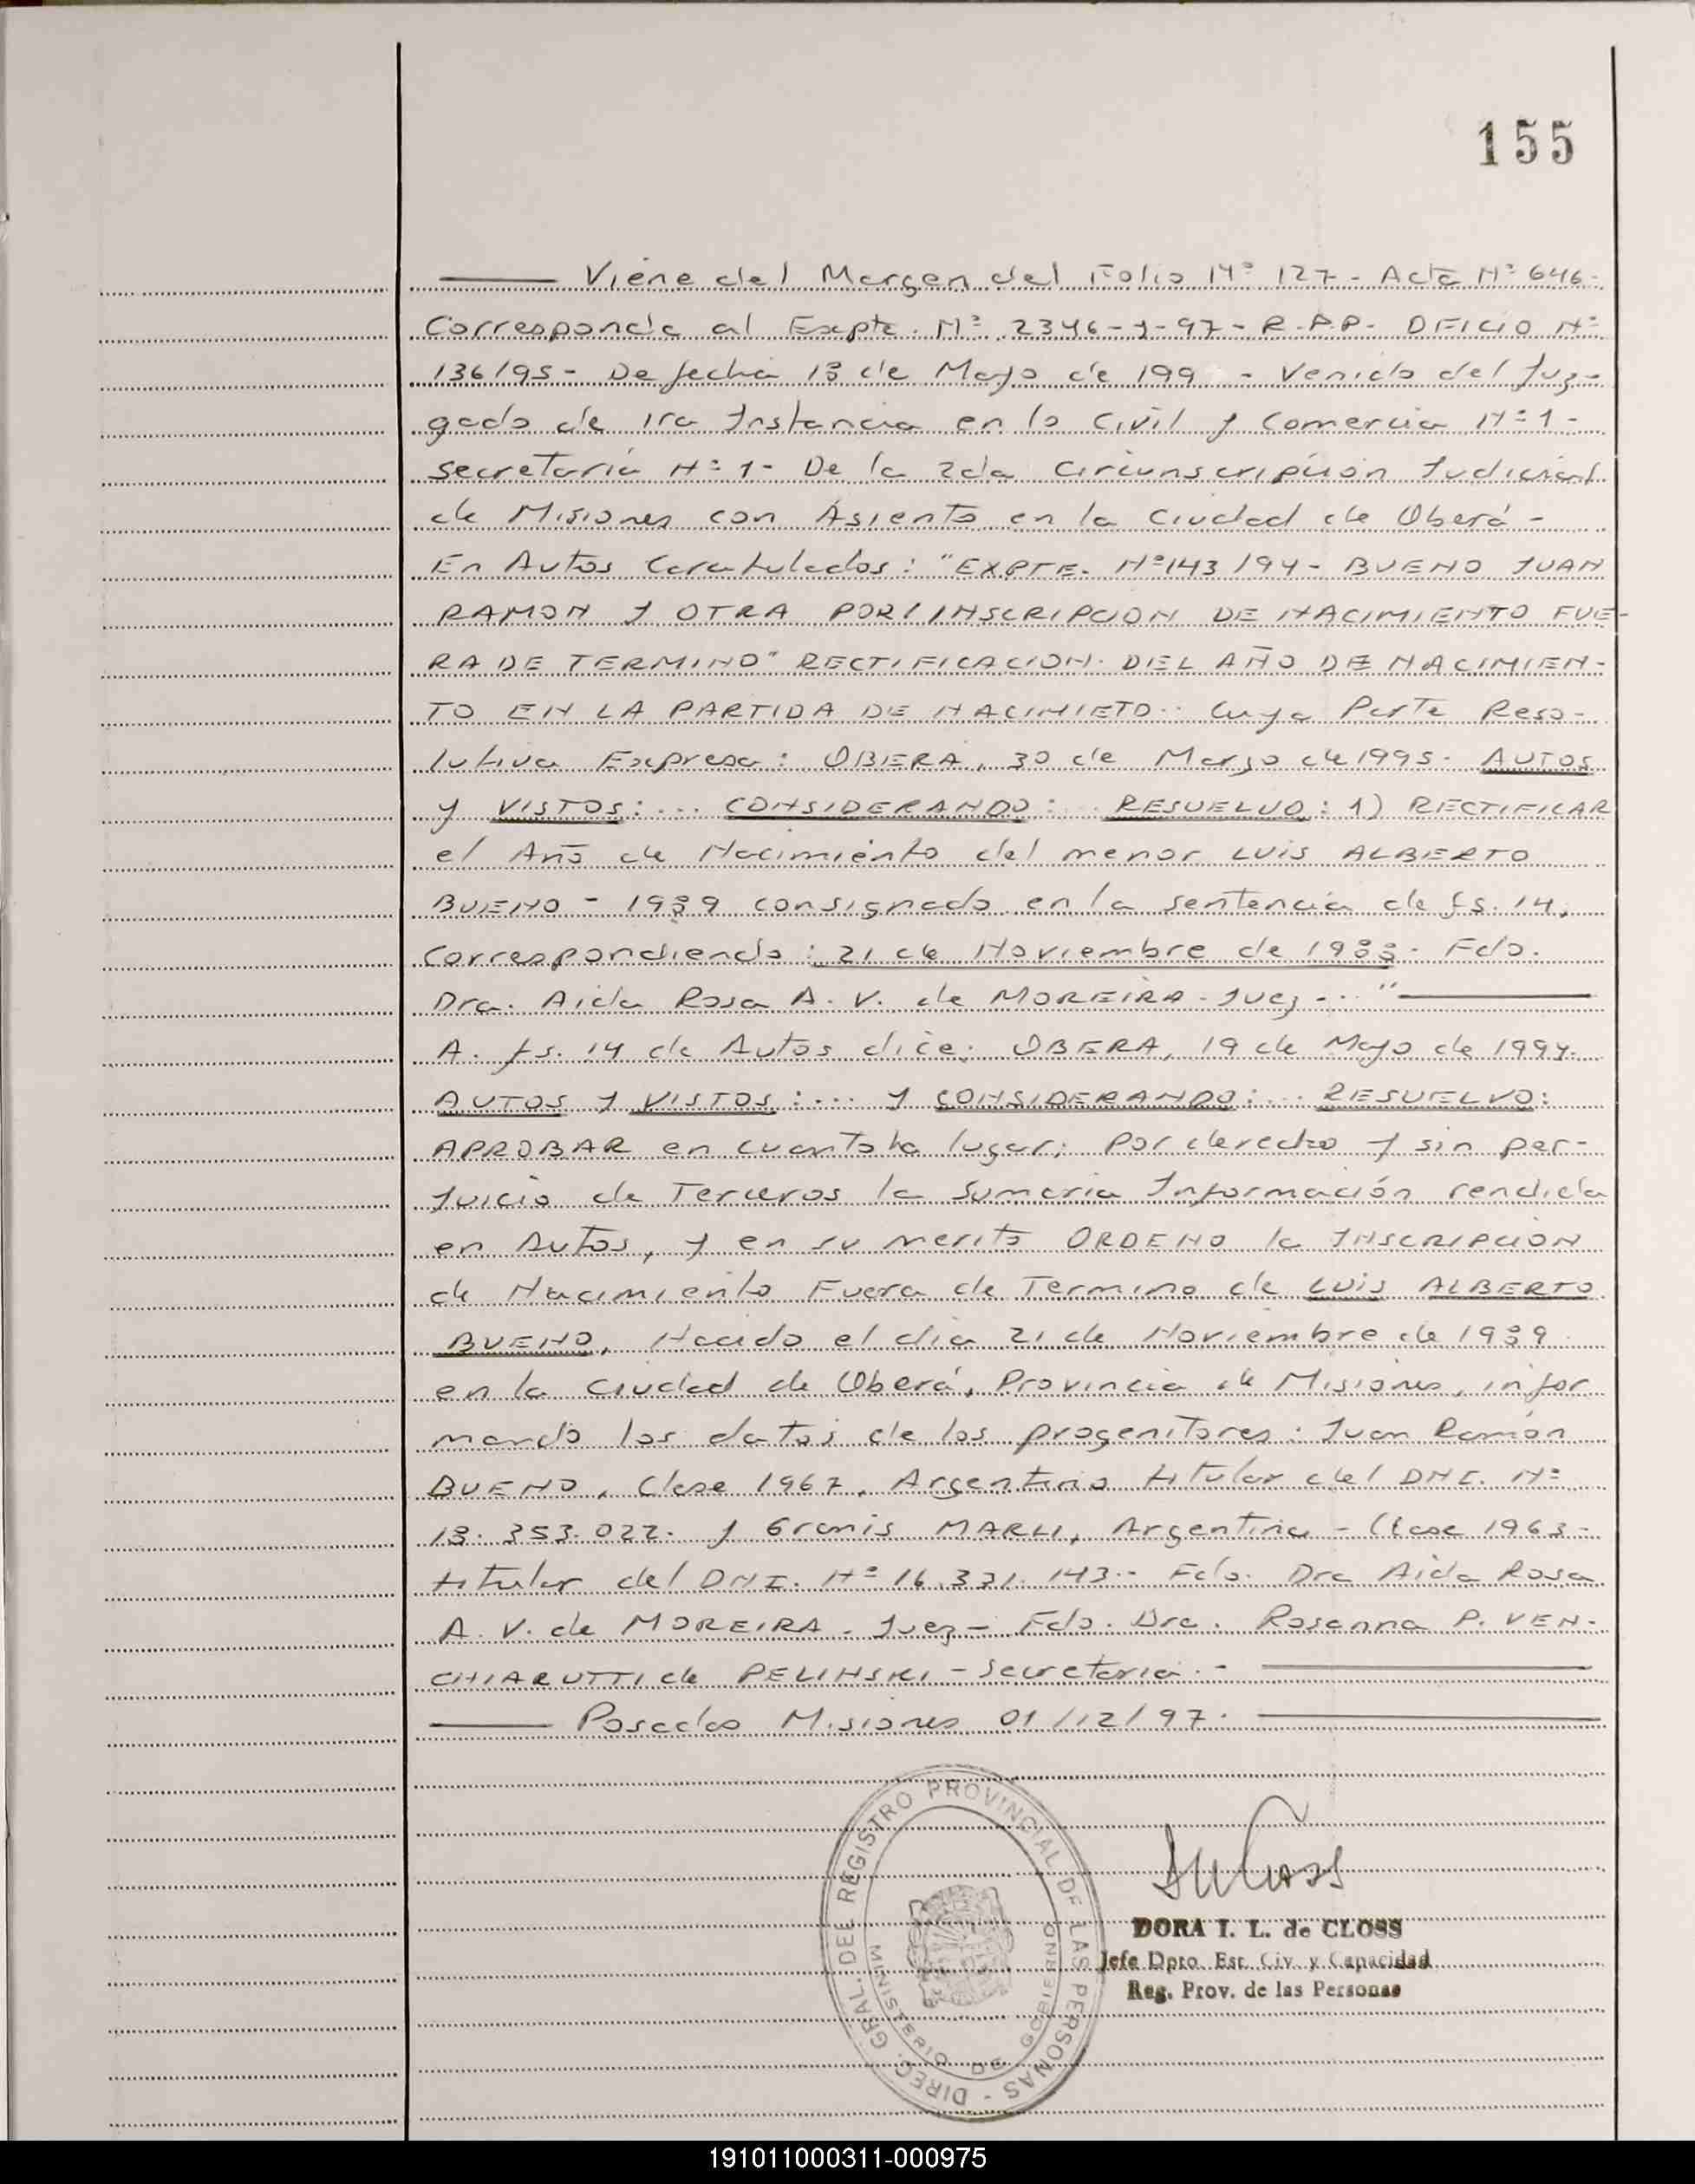 155
Viene del Margen del Folio Nº 127 - Acta Nº 646-
Corresponde al Expte. Nº 2346-Y-97- R.P.P. OFICIO Nº
136/95- De fecha 18 de Mayo de 199 - Venido del Juz-
gado de 1ra Instancia en lo Civil y Comercia Nº 1-
Secretaría Nº 1- De la 2da Circunscripción Judicial
de Misiones con Asiento en la Ciudad de Oberá-
En Autos Caratulados: "EXPTE. Nº 143/94- BUENO JUAN
RAMON Y OTRA POR/INSCRIPCION DE NACIMIENTO FUE-
RA DE TERMINO" RECTIFICACION DEL AÑO DE NACIMIEN-
TO EN LA PARTIDA DE NACIMIETO.. Cuya Parte Reso-
lutiva Expresa: OBERA, 30 de Marzo de 1995. AUTOS
y VISTOS:... CONSIDERANDO:... RESUELVO: 1) RECTIFICAR
el Año de Nacimiento del menor LUIS ALBERTO
BUENO - 1989 consignado en la sentencia de fs. 14,
Correspondiendo: 21 de Noviembre de 1988. Fdo.
Dra. Aida Rosa A. V. de MOREIRA. Juez-..."
A. fs. 14 de Autos dice: OBERA, 19 de Mayo de 1994.
AUTOS Y VISTOS:... Y CONSIDERANDO:... RESUELVO:
APROBAR en cuanto ha lugar; por derecho y sin per-
Juicio de Terceros la Sumaria Información rendida
en Autos, y en su merito ORDENO la INSCRIPCION
de Nacimiento Fuera de Termino de LUIS ALBERTO
BUENO, Nacido el día 21 de Noviembre de 1989
en la Ciudad de Oberá, Provincia de Misiones, infor
mando los datos de los progenitores: Juan Ramón
BUENO, Clase 1967, Argentino titular del DNI. Nº
18.353.022. y Granis MARLI, Argentina - Clase 1963-
titular del DNI. Nº 16.331.143.- Fdo. Dra Aida Rosa
A. V. de MOREIRA. Juez- Fdo. Dra. Rosanna P. VEN-
CHIARUTTI de PELINSKI - Secretaria.-
Posadas Misiones 01/12/97.
DIREC. GRAL. DEL REGISTRO PROVINCIAL DE LAS PERSONAS -
MINISTERIO DE GOBIERNO
DORA I. L. de CLOSS
Jefe Dpto. Est. Civ. y Capacidad
Reg. Prov. de las Personas
191011000311-000975